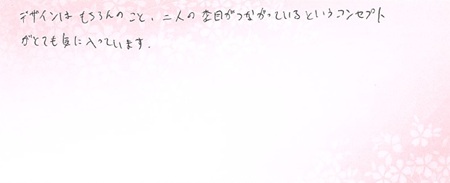 デザインはもちろんのこと、二人の木目がつながっているというコンセプト
がとても気に入っています.